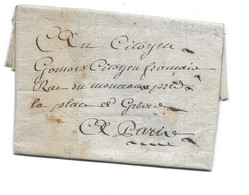 Au Citoyen
Gomois Citoyen français
Rue du monceau près
la place de Grève
A Paris